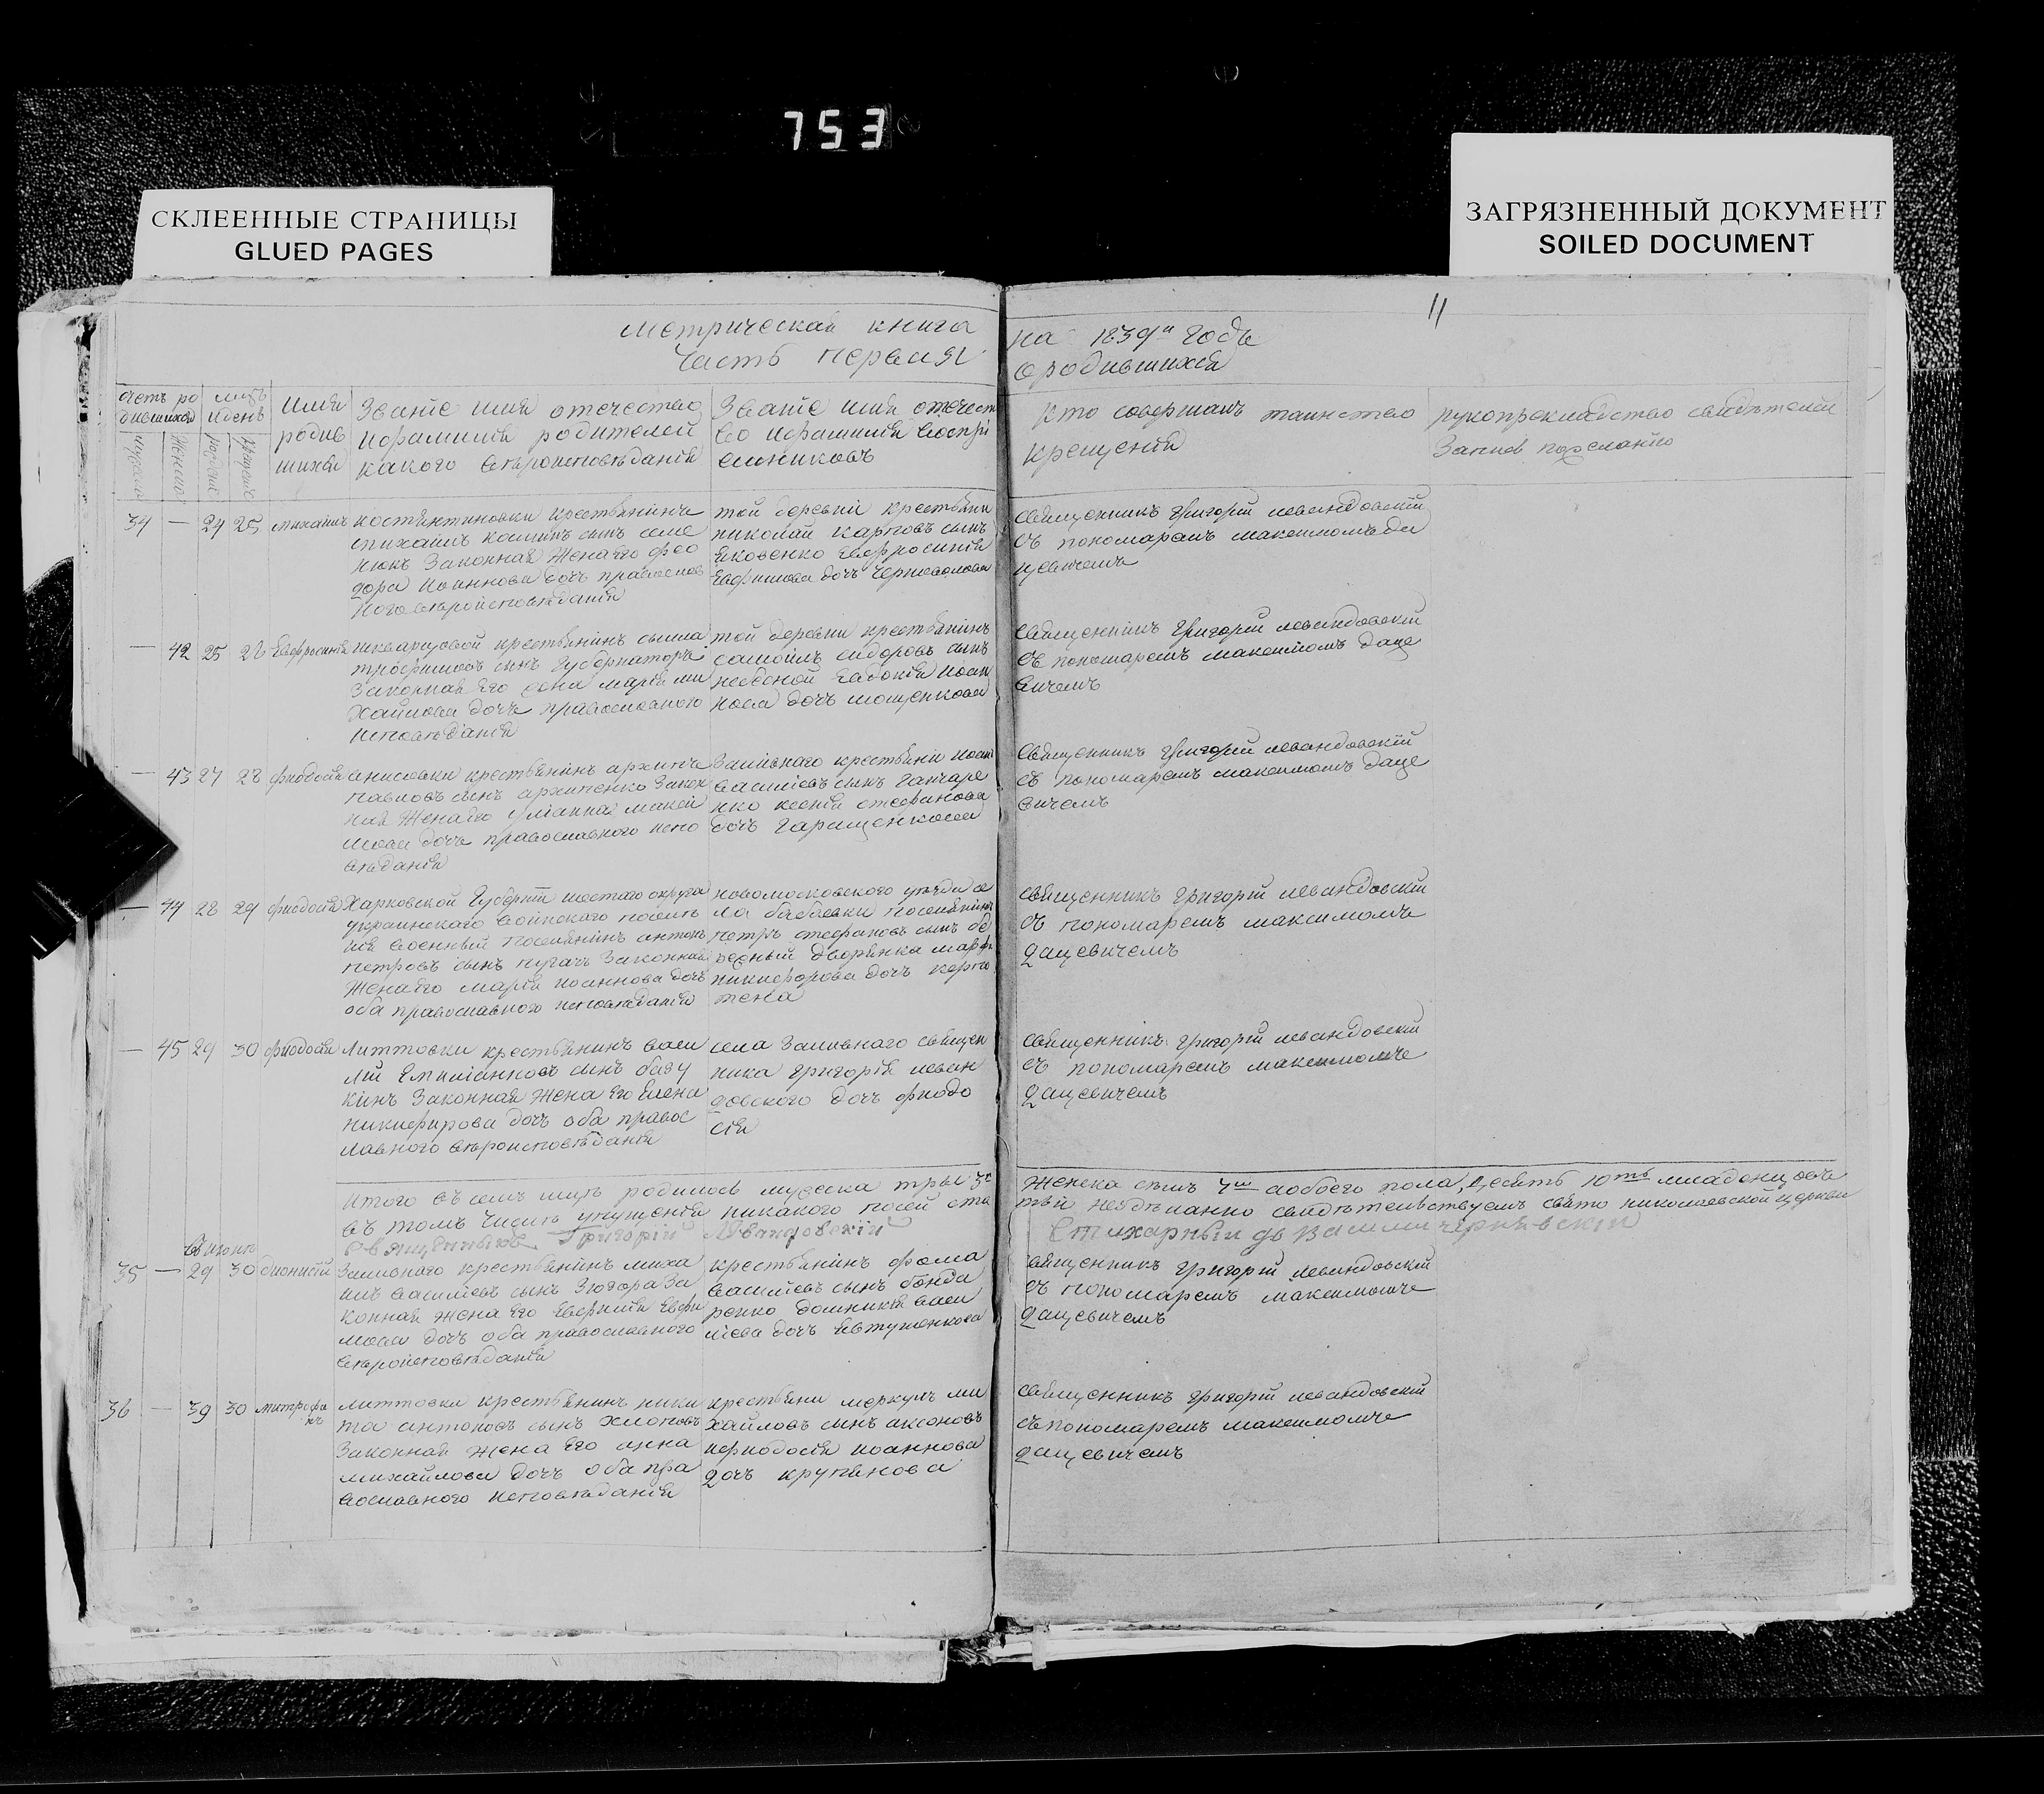 753
СКЛЕЕННЫЕ СТРАНИЦЫ
GLUED PAGES
ЗАГРЯЗНЕННЫЙ ДОКУМЕНТ
SOILED DOCUMENT
11
метрическая книга на 1839й годъ
Часть первая ородившихся
Счетъ ро
дившихся
мцъ
идень
Имя
родив
шихся
Званіе имя отечество
ифамилія родителей
какого вѣроисповѣданія
Званіе имя отечест
во ифамилія воспрі
емниковъ
кто совершалъ таинство
крещенія
рукоприкладство свидѣтелей
34 — 24 25 михаилъ
крестьянинъ
михаилъ сынъ
нюкъ Законная Жена его фео
дора Иоаннова дочъ православ
ного вѣроисповѣданія
той деревни крестьяни
николай карповъ сынъ
яковенко Евфросинія
Евфимова дочъ
священникъ григорій левандовскій
съ пономаремъ максимомъ да
цевичемъ
— 42 25 28 Евфросинія
крестьянинъ
трофимовъ сынъ Губернаторъ
Законная его жена марія ми
хайлова дочъ православного
исповѣданія
той деревни крестьянинъ
самойлъ сидоровъ сынъ
Евдокія Иоан
нова дочъ
священникъ григорій левандовскій
съ пономаремъ максимомъ даце
вичемъ
— 43 27 28 фиодосія
крестьянинъ архипъ
павловъ сынъ архипенко Закон
ная Жена его улианна макси
мова дочъ православного испо
вѣданія
Заливного крестьяни
василіевъ сынъ Ганчаре
нко ксенія стефанова
дочъ Геращенкова
священникъ григорій левандовскій
съ пономаремъ максимомъ даце
вичемъ
— 44 28 29 фиодосія
Харковской Губерніи шестого округа
украинскаго воинского поселе
нія военный поселянинъ антонъ
петровъ сынъ пугачъ Законная
Жена его марія иоаннова дочъ
оба православного исповѣданія
новомосковского уѣзда се
ла бабаевки поселянинъ
петръ стефановъ сынъ
дворянка марфа
никифорова дочъ
священникъ григорій левандовскій
съ пономаремъ максимомъ
дацевичемъ
— 45 29 30 фиодосія
Литтовки крестьянинъ васи
лій Емиліановъ сынъ
Законная Жена Его Елена
никифирова дочъ оба правос
лавного вѣроисповѣданія
села Заливнаго священ
ника григорія леван
довского дочъ фиодо
сія
священникъ григорій левандовскій
съ пономаремъ максимомъ
дацевичемъ
Итого въ семъ мцѣ родилось мужеска три 3 Женска семъ 7м аобоего пола десять 10ть младенцовъ
въ томъ числѣ упущенія никакого неодѣланно свидѣтельствуемъ свято николаевской церкви
Священникъ Григорій Левандовскій
Стихарный
35 — 29 30 дионисій
Заливнаго крестьянинъ миха
илъ василіевъ сынъ За
конная Жена Его Евфимія Евфи
мова дочъ оба православного
вѣроисповѣданія
крестьянинъ фома
василіевъ сынъ бонда
ренко домникія васи
ліева дочъ Евтушенкова
священникъ григорій левандовскій
съ пономаремъ максимомъ
дацевичемъ
36 — 39 30 митрофа
нъ
литтовки крестьянинъ ники
та антоновъ сынъ
Законная Жена Его анна
михайлова дочъ оба пра
вославного исповѣданія
крестьяни меркулъ ми
хайловъ сынъ аксоновъ
ифиодосія иоаннова
дочъ крупянова
священникъ григорій левандовскій
съ пономаремъ максимомъ
дацевичемъ